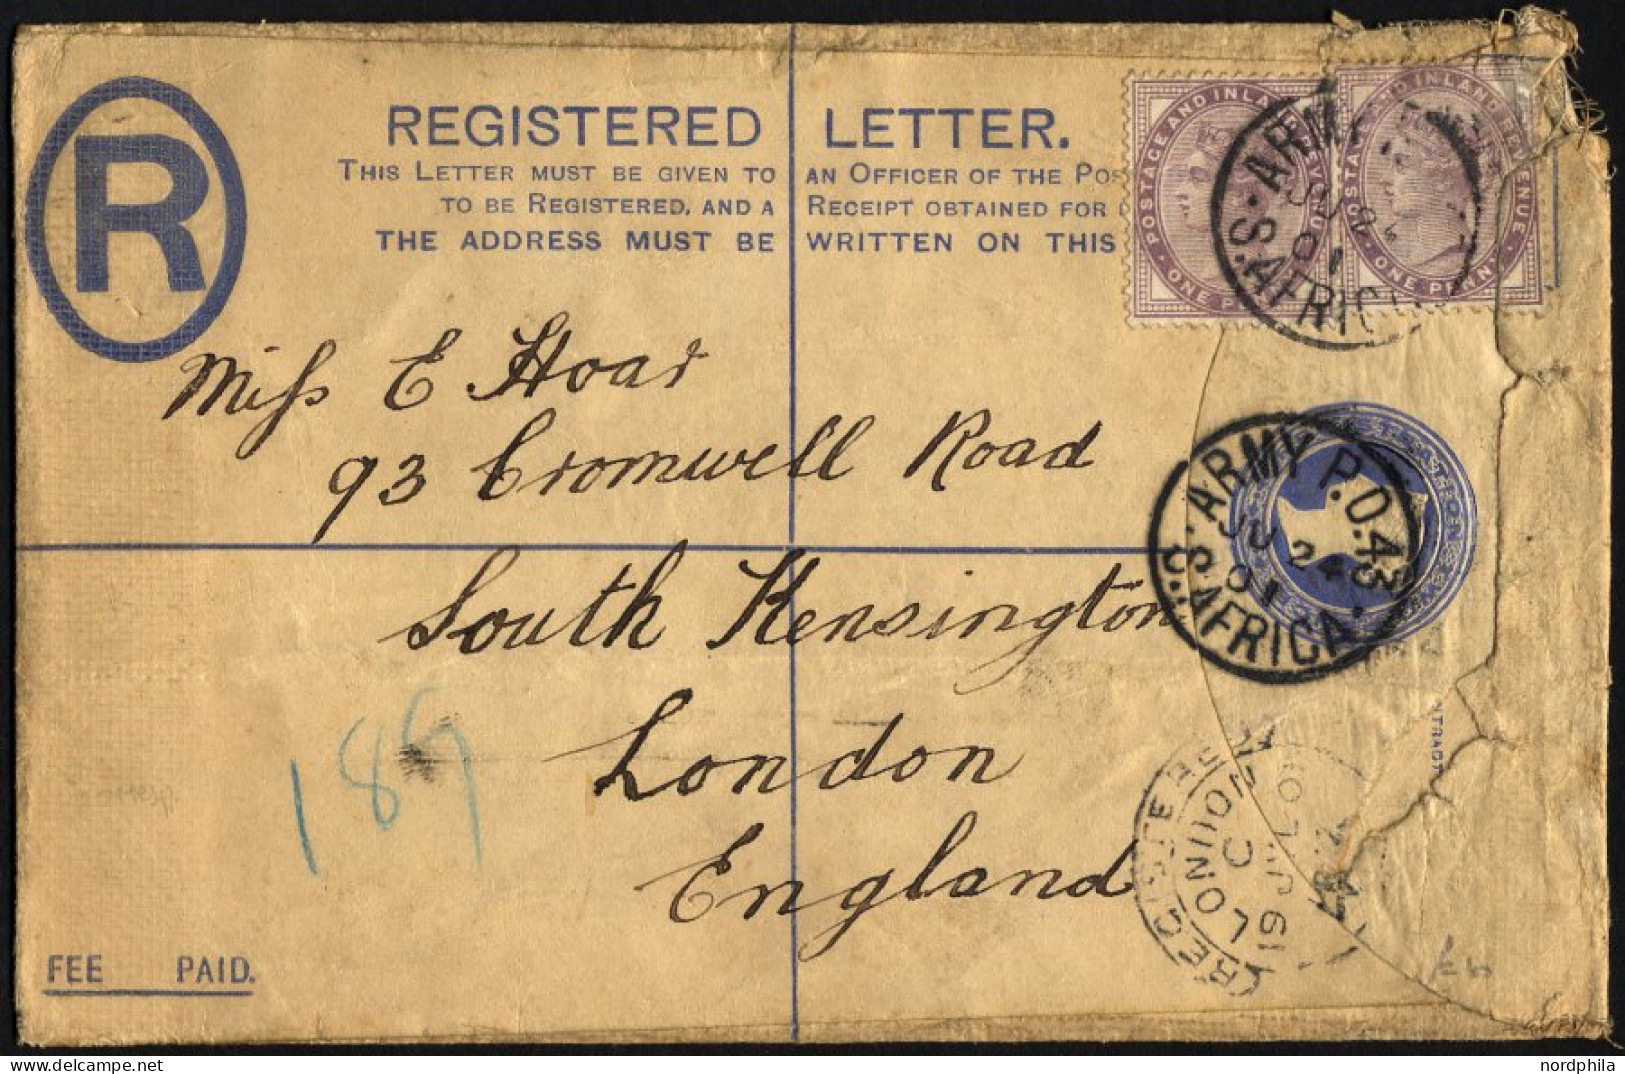 R
REGISTERED LETTER.
THIS LETTER MUST BE GIVEN TO AN OFFICER OF THE POS
TO BE REGISTERED, AND A RECEIPT OBTAINED FOR
THE ADDRESS MUST BE WRITTEN ON THIS
POSTAGE AND INLAND REVENUE
ONE PENNY
POSTAGE AND INLAND REVENUE
ONE PENNY
ARMY
JU 2
01
S. AFRICA
Miss E Hoar
93 Cromwell Road
South Kensington
London
England
ARMY P.O. 43
JU 24
01
S. AFRICA
189
REGISTERED
LONDON
C
19 JY 01
NTRACT
FEE PAID.
© nordphila
www.delcampe.net